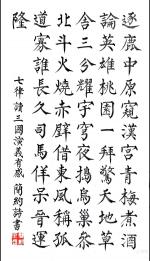 逐鹿中原窺漢宫青梅煮酒
論英雄桃園一拜驚天地草
舍三分耀宇穹夜鵲烏巢恭
北斗火燒赤壁借東風稱孤
道寡誰長久司馬佯呆晉運
隆
七律 讀三國演義有感 簡約詩書